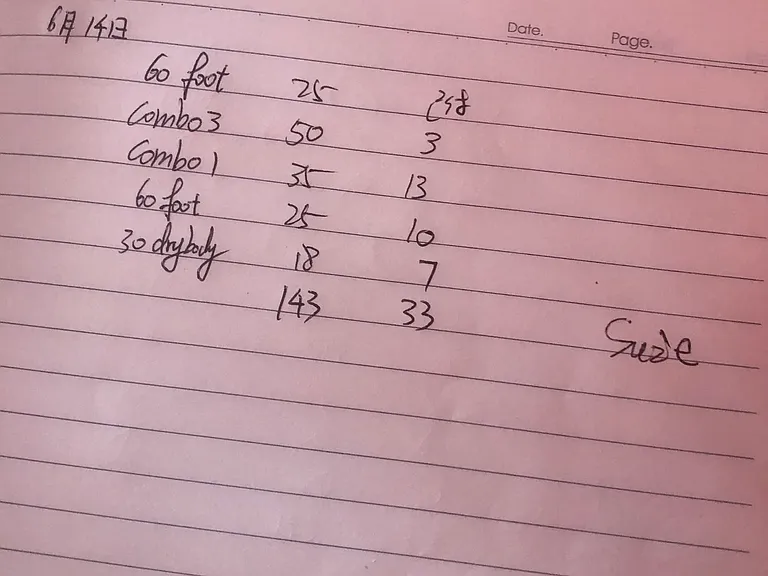 6月14日
Date. Page.
60 foot 25
Combo 3 50 3
Combo 1 35 13
60 foot 25 10
30 drybody 18 7
143 33
Suzie